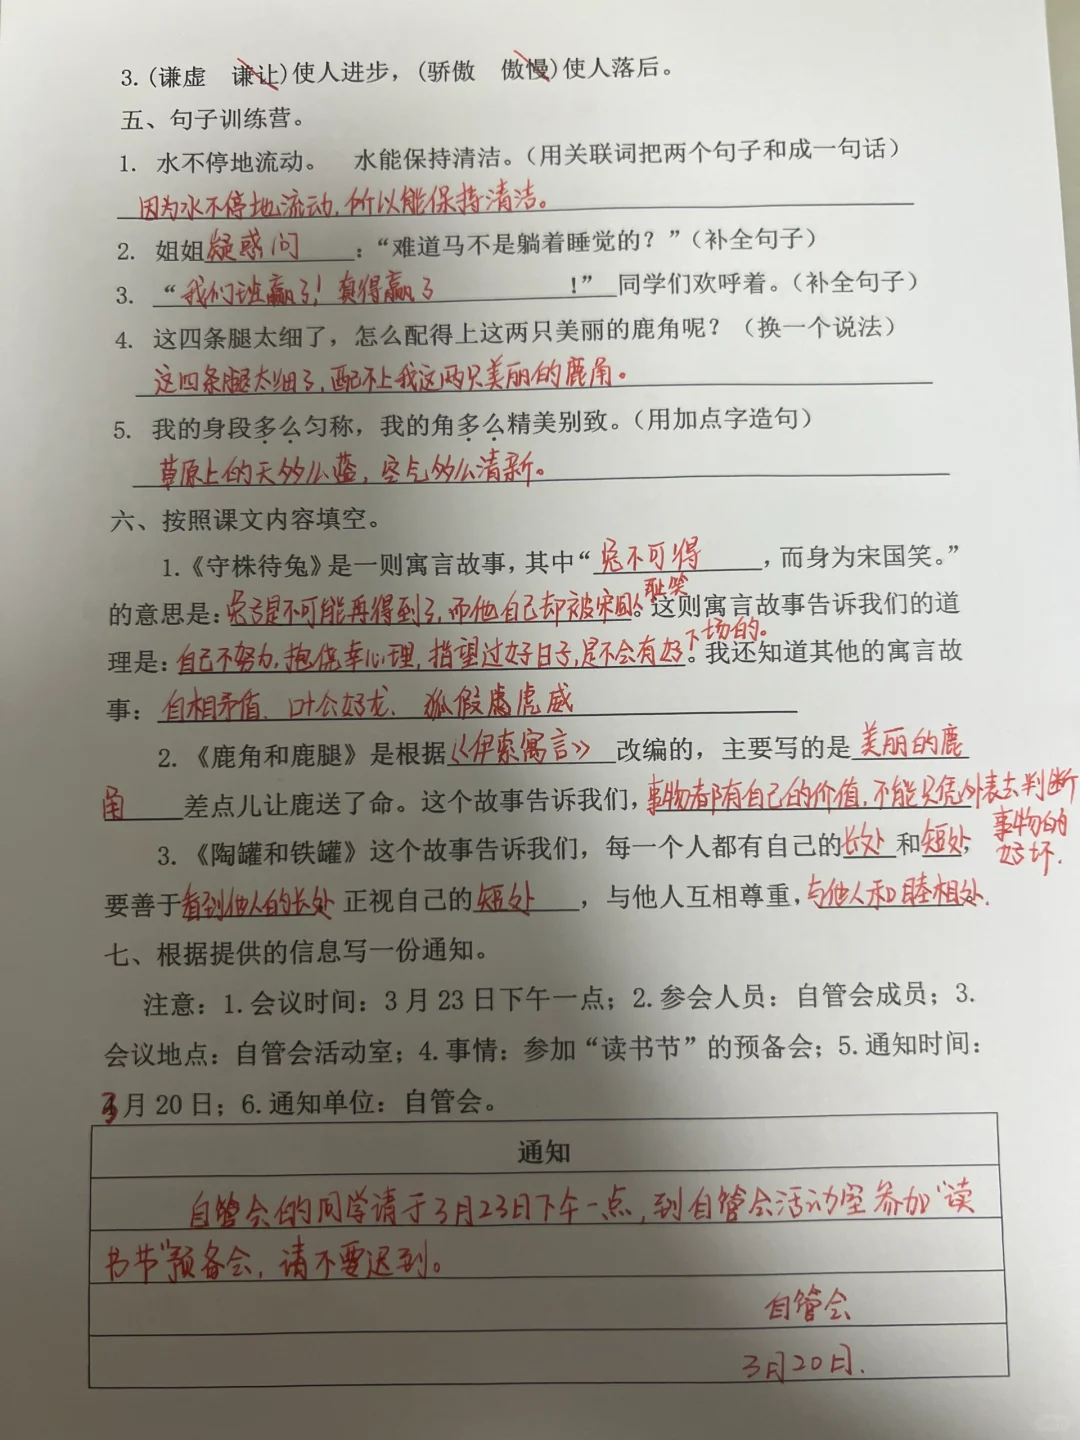 3.(谦虚 谦让)使人进步，(骄傲 傲慢)使人落后。
五、句子训练营。
1. 水不停地流动。 水能保持清洁。（用关联词把两个句子和成一句话）
因为水不停地流动，所以能保持清洁。
2. 姐姐疑惑问：“难道马不是躺着睡觉的？”（补全句子）
3. “我们班赢了！真得赢了！”同学们欢呼着。（补全句子）
4. 这四条腿太细了，怎么配得上这两只美丽的鹿角呢？（换一个说法）
这四条腿太细了，配不上我这两只美丽的鹿角。
5. 我的身段多么匀称，我的角多么精美别致。（用加点字造句）
草原上的天多么蓝，空气多么清新。
六、按照课文内容填空。
1.《守株待兔》是一则寓言故事，其中“兔不可得，而身为宋国笑。”
的意思是：兔子是不可能再得到了，而他自己却被宋国人耻笑。这则寓言故事告诉我们的道
理是：自己不努力，抱侥幸心理，指望过好日子，是不会有好下场的。。我还知道其他的寓言故
事：自相矛盾、叶公好龙、狐假虎威
2.《鹿角和鹿腿》是根据《伊索寓言》改编的，主要写的是美丽的鹿
角差点儿让鹿送了命。这个故事告诉我们，事物都有自己的价值，不能只凭外表去判断
事物的
好坏.
3.《陶罐和铁罐》这个故事告诉我们，每一个人都有自己的长处和短处，
要善于看到他人的长处正视自己的短处，与他人互相尊重，与他人和睦相处.
七、根据提供的信息写一份通知。
注意：1.会议时间：3月23日下午一点；2.参会人员：自管会成员；3.
会议地点：自管会活动室；4.事情：参加“读书节”的预备会；5.通知时间：
3月20日；6.通知单位：自管会。
通知
自管会的同学请于3月23日下午一点，到自管会活动室参加“读
书节”预备会，请不要迟到。
自管会
3月20日.